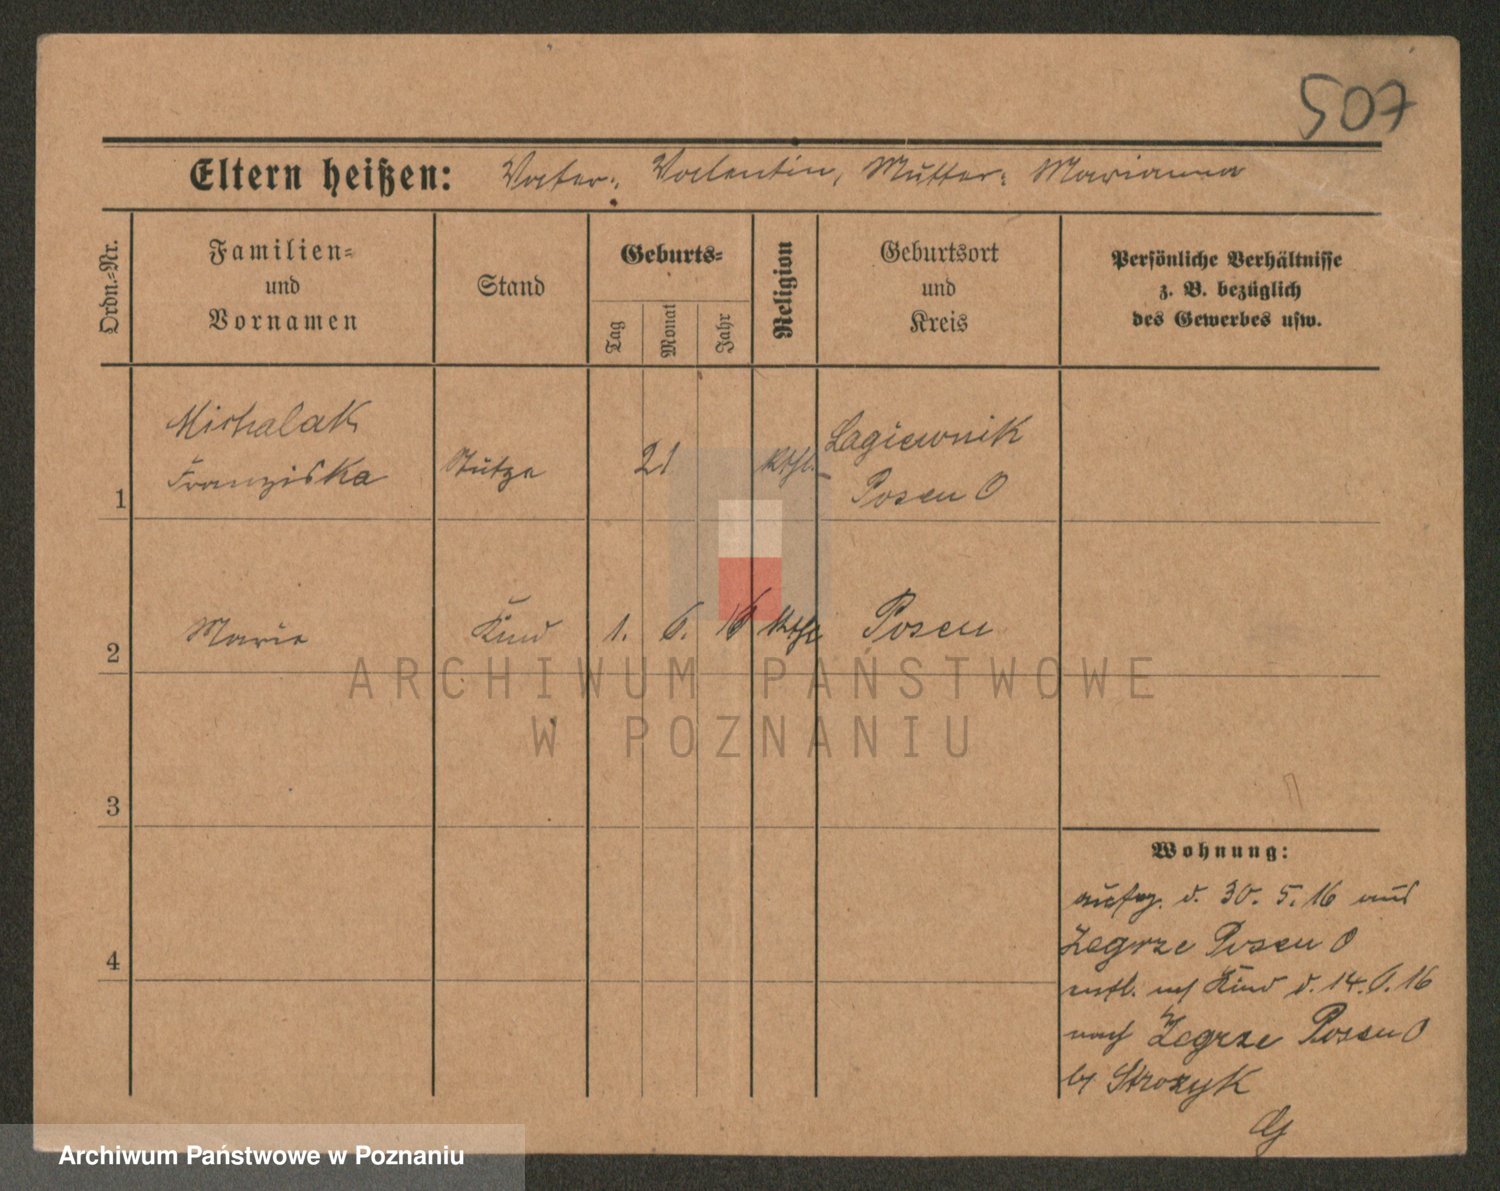 507
Eltern heißen: Vater: Valentin, Mutter: Marianna
Ordn.-Nr.
Familien-
und
Vornamen
Stand
Geburts-
Tag
Monat
Jahr
Religion
Geburtsort
und
Kreis
Persönliche Verhältnisse
z. B. bezüglich
des Gewerbes usw.
1
Michalak
Franziska
Stütze
21
kthl.
Lagiewnik
Posen O
2
Marie
Kind
1. 6. 16
kthl
Posen
3
4
Wohnung:
aufg. d. 30. 5. 16 aus
Zegrze Posen O
entl. mit Kind d. 14. 6. 16
nach Zegrze Posen O
bei Strozyk
ARCHIWUM PAŃSTWOWE
W POZNANIU
Archiwum Państwowe w Poznaniu